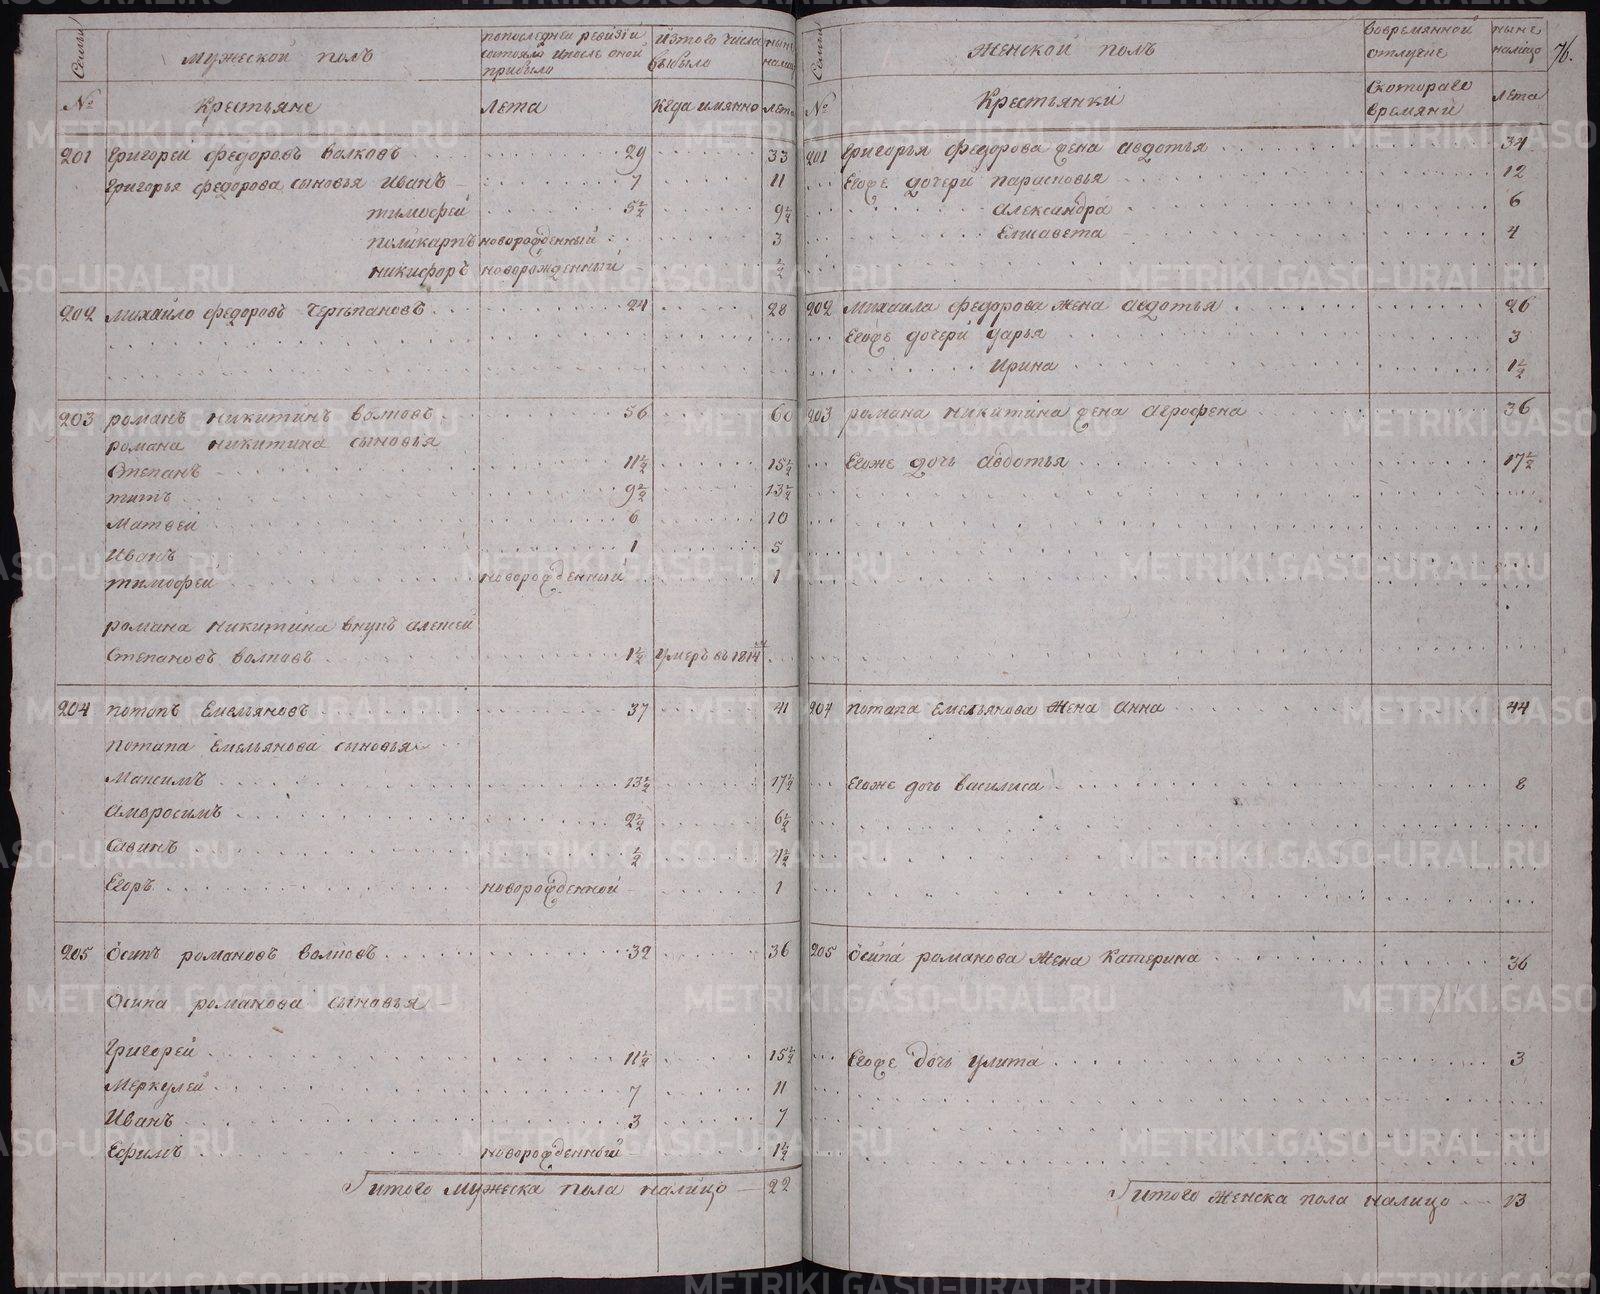 Семьи
Мужеской полъ
попоследней ревизіи состояло ипосле оной прибыло
Изтого числа выбыло
ныне налицо
№
Крестьяне
Лета
Когда имянно
лета
201 Григорей федоровъ волковъ 29 33
Григорья федорова сыновья Иванъ 7 11
тимофей 5½ 9½
поликарпъ новорожденный 3
никифоръ новорожденный ½
202 Михайло федоровъ 24 28
203 романъ никитинъ волковъ 56 60
романа никитина сыновья
Степанъ 11½ 15½
титъ 9½ 13½
Матвей 6 10
Иванъ 1 5
тимофей новорожденный 1
романа никитина внукъ алексей
Степановъ волковъ 1½ умеръ въ 1814м
204 потапъ Емельяновъ 37 41
потапа Емельянова сыновья
Максимъ 13½ 17½
Амвросимъ 2½ 6½
Савинъ ½ 4½
Егоръ новорожденной 1
205 Осипъ романовъ волковъ 32 36
Осипа романова сыновья
Григорей 11½ 15½
Меркулей 7 11
Иванъ 3 7
Ефимъ новорожденный 1½
итого мужеска пола налицо 22
Семьи
Женской полъ
вовремянной отлучке
ныне налицо
76.
№
Крестьянки
Скотораго времяни
лета
201 Григорья федорова жена авдотья 34
Егоже дочери парасковья 12
Александра 6
Елисавета 4
202 Михаила федорова жена авдотья 26
Егожъ дочери дарья 3
Ирина 1½
203 романа никитина жена агрофена 36
Егоже дочь авдотья 17½
204 потапа Емельянова жена Анна 44
Егоже дочь василиса 8
205 Осипа романова жена Катерина 36
Егоже дочь улита 3
итого женска пола налицо 13
METRIKI.GASO-URAL.RU